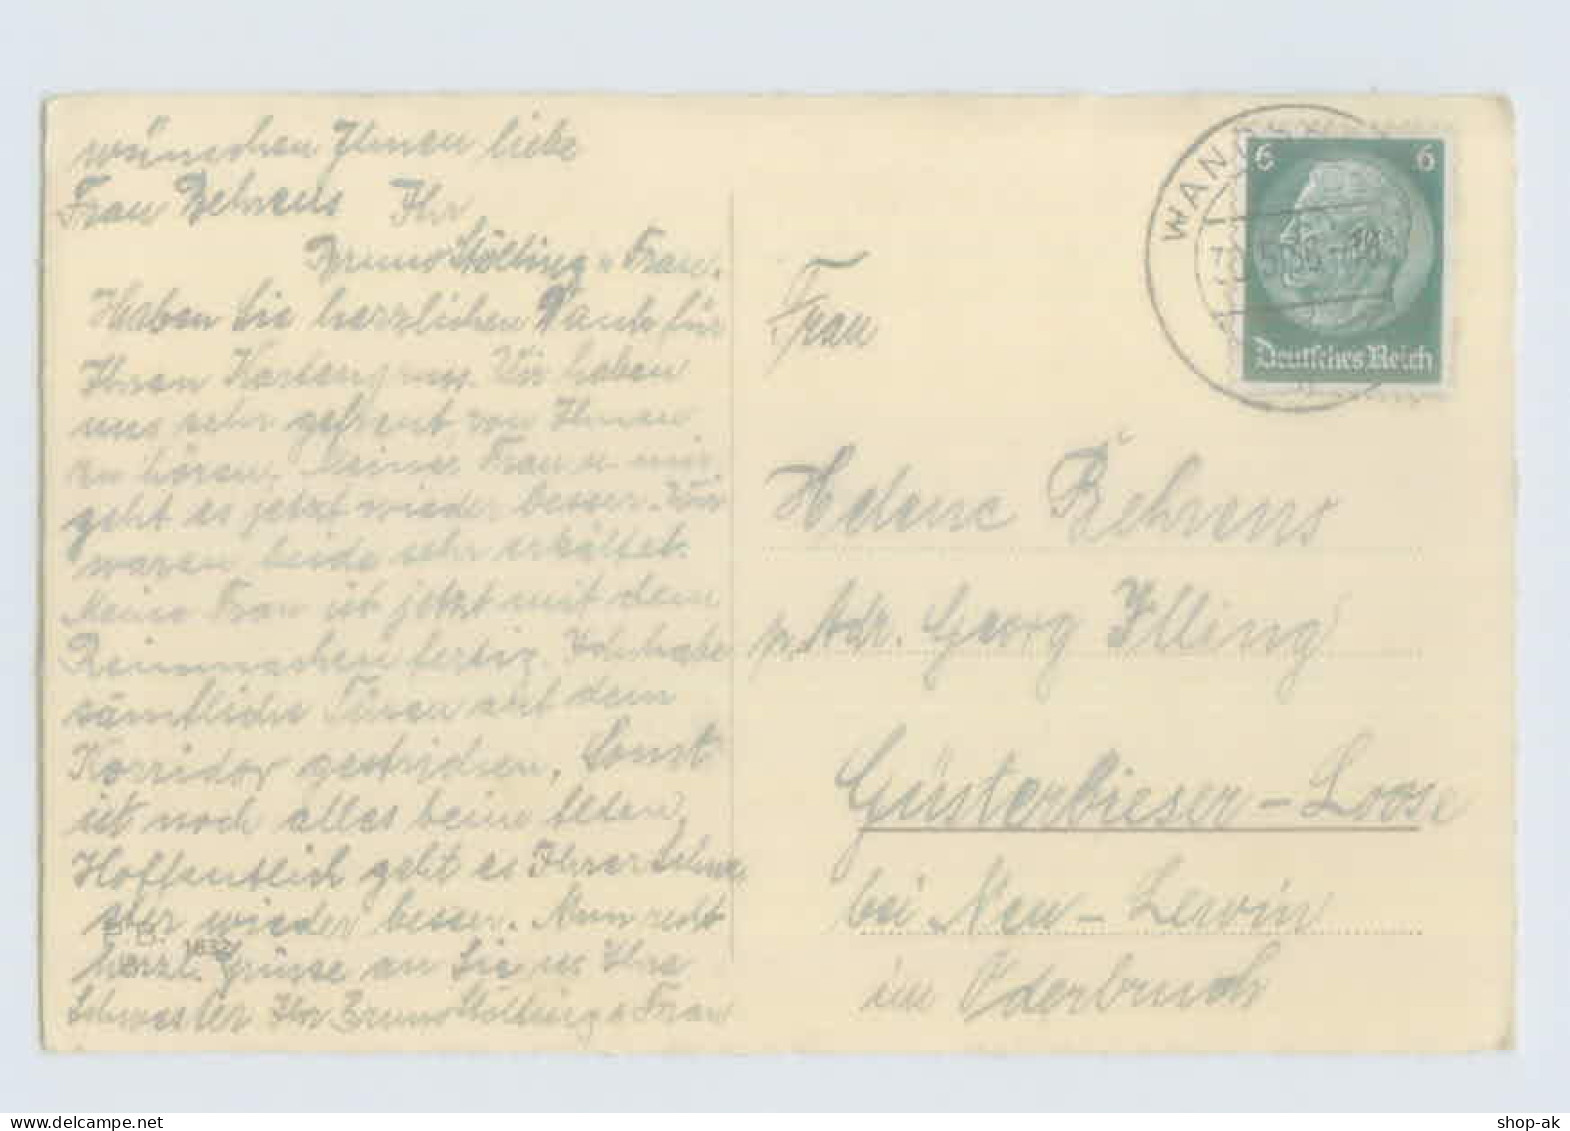 wünschen Ihnen liebe
Frau Behrens Ihr
Bruno Stölting u Frau.
Haben Sie herzlichen Dank für
Ihren Kartengruss. Wir haben
uns sehr gefreut von Ihnen
zu hören. Meiner Frau u mir
geht es jetzt wieder besser. Wir
waren beide sehr erkältet.
Meine Frau ist jetzt mit dem
Reinmachen fertig. Ich habe
sämtliche Türen auf dem
Korridor gestrichen. Sonst
ist noch alles beim Alten.
Hoffentlich geht es Ihrer Schwe
ster wieder besser. Nun recht
herzl. Grüsse an Sie u Ihre
Schwester Ihr Bruno Stölting u Frau
1632
6 6
Deutsches Reich
Frau
Helene Behrens
p. Adr. Georg Illing
Güsterbieser-Loose
bei Neu-Lewin
im Oderbruch
shop-ak